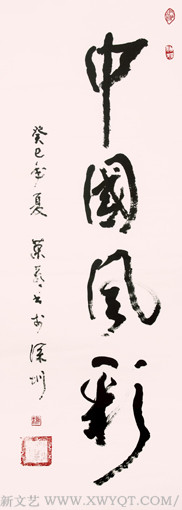 中國风彩
癸巳年夏
书於深圳
新文艺 WWW.XWYQT.COM